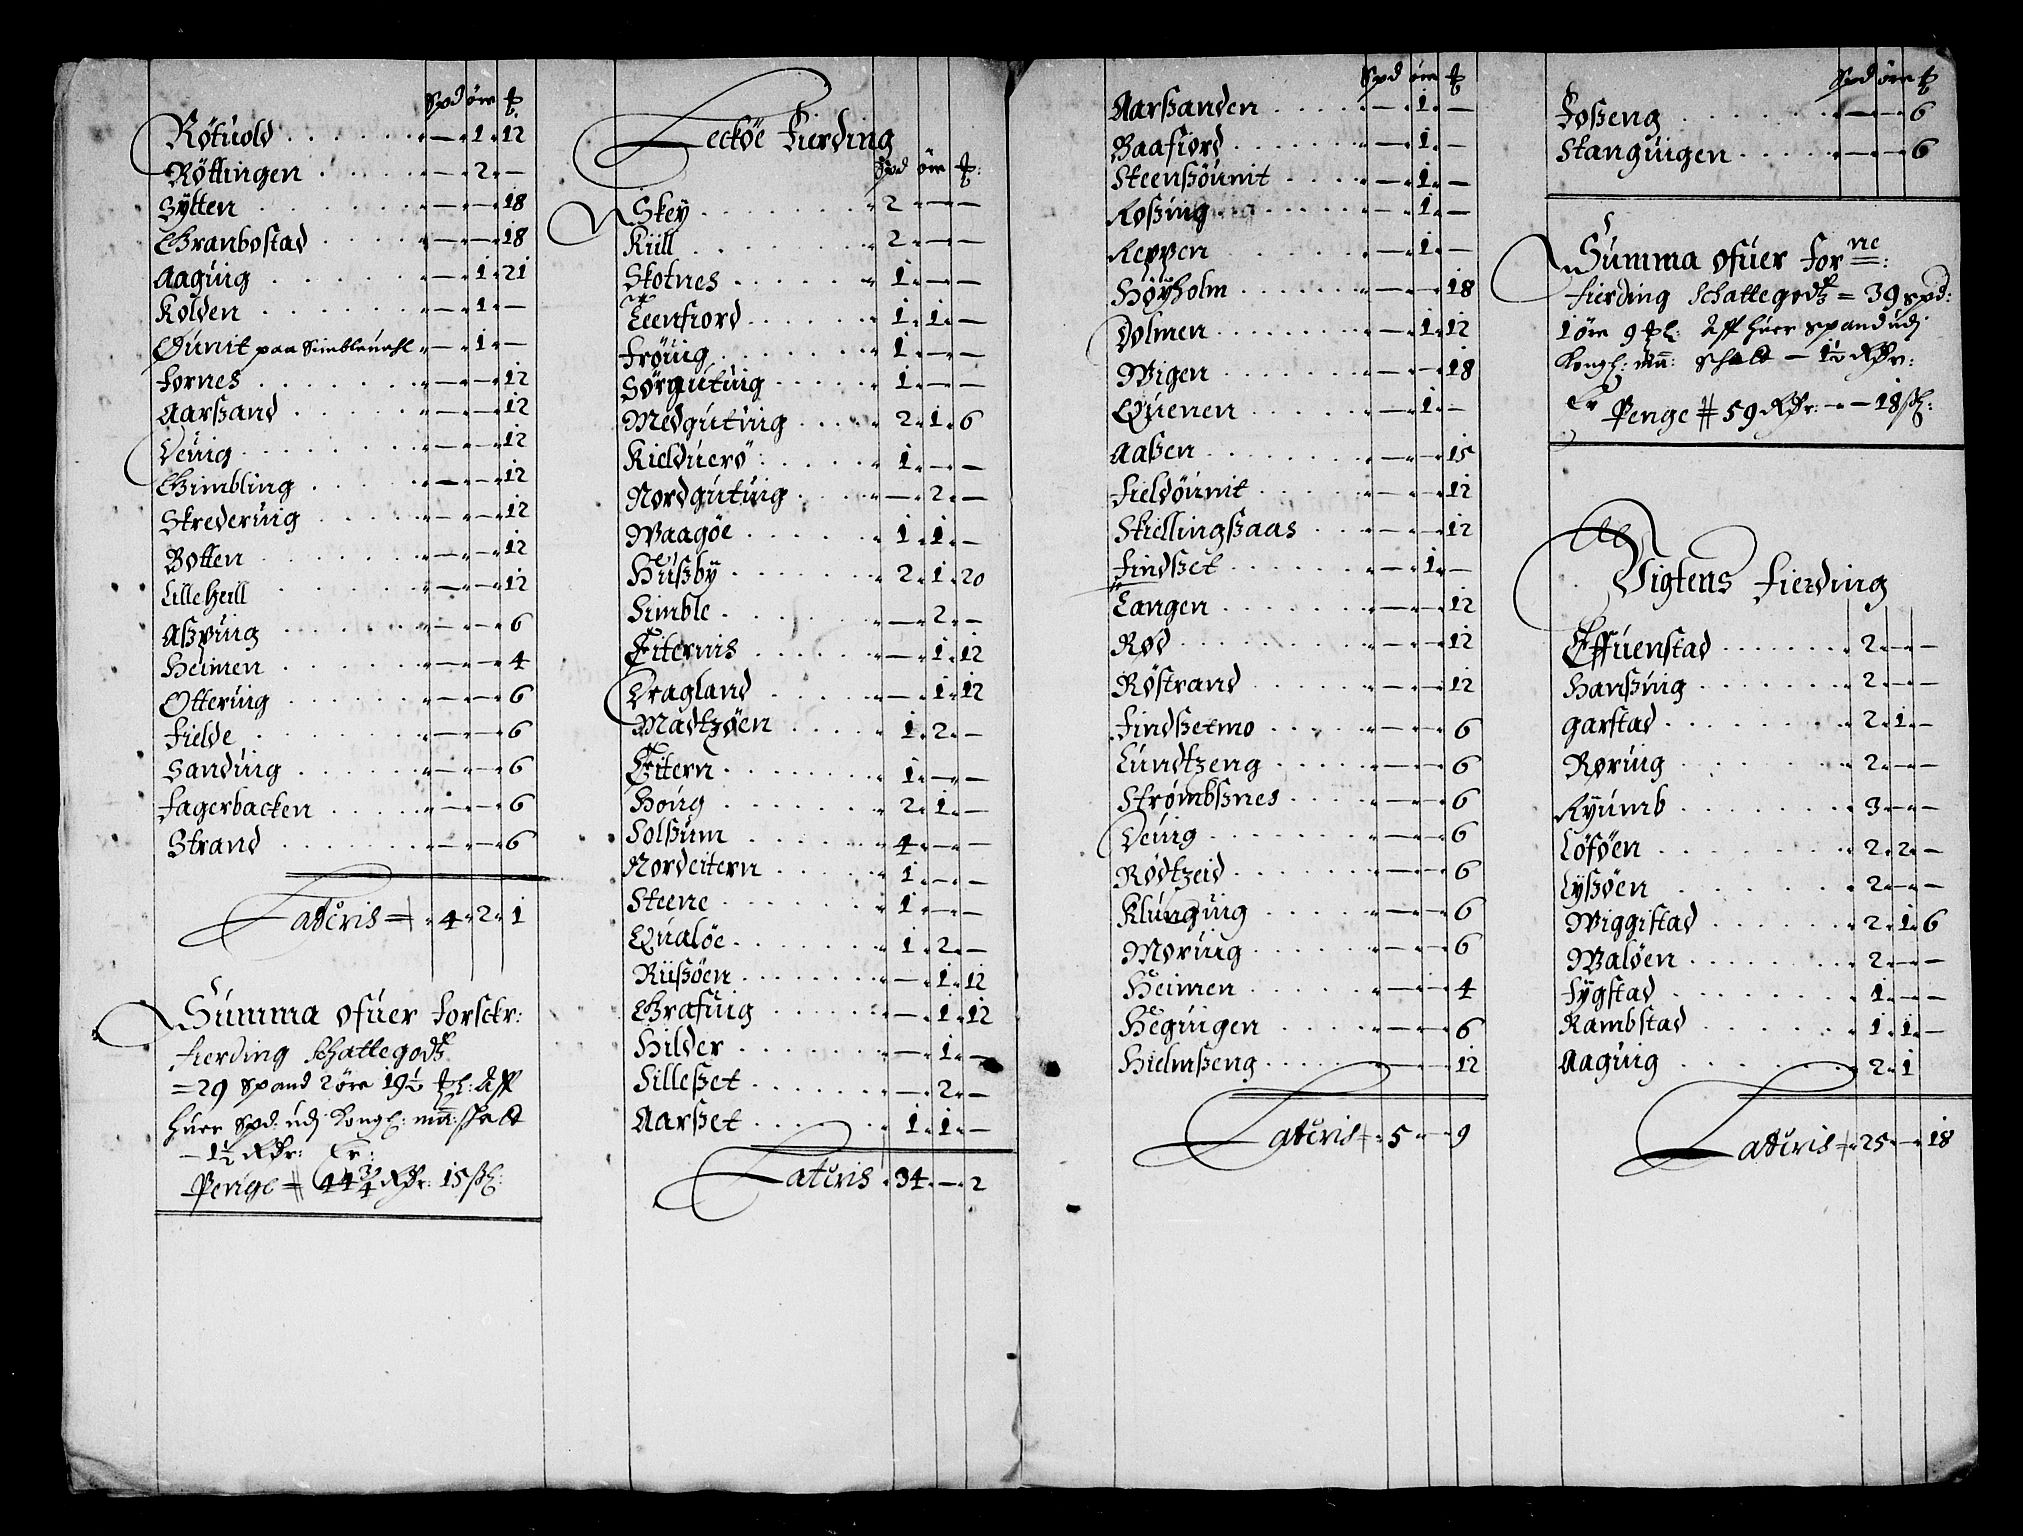 Spd øre ⅌.
Røtuold . . . . . — 1 12
Röttingen . . . . . — 2 —
Bÿtten . . . . . — — 18
Granbostad . . . . — — 18
Aaguig . . . . . — 1 21
Kolden . . . . . — 1 —
Qunit paa Simbleuahl — 1 —
Fornes . . . . . — — 12
Aarßand . . . . . — — 12
Deuig . . . . . — — 12
Gimbling . . . . — — 12
Skrederuig . . . . — — 12
Botten . . . . . — — 12
Lille Heill . . . . — — 12
Aßpuig . . . . . — — 6
Heimen . . . . . — — 4
Otteruig . . . . — — 6
Fielde . . . . . — — 6
Sanduig . . . . . — — 6
Fagerbacken . . . . — — 6
Strand . . . . . — — 6
Lateris = 4 2 1
Summa ofuer forschr:
fierding Schattegodtz
= 29 spand 2 øre 19½ ⅌l: Aff
huer Spd: udj Kongl: maÿ: schatt
— 1½ Rdr: Er:
Penge = 44¾ Rdr: 15 sk:
Leckøe Fierding
Spd øre ⅌:
Skeÿ . . . . . 2 — —
Kiill . . . . . 2 — —
Skotnes . . . . . 1 — —
Leenfiord . . . . . 1 1 —
Frøuig . . . . . 1 — —
Sørgutuig . . . . . 1 — —
Medgutuig . . . . . 2 1 6
Kielduerø . . . . . 1 — —
Nordgutuig . . . . — 2 —
Waagöe . . . . . 1 1 —
Hußbÿ . . . . . 2 1 20
Simble . . . . . — 2 —
Eiternis . . . . . — 1 12
Dragland . . . . . — 1 12
Madtzøen . . . . . 1 2 —
Eitern . . . . . 1 — —
Houg . . . . . 2 1 —
Solßum . . . . . 4 — —
Nordeitern . . . . 1 — —
Steene . . . . . 1 — —
Qualöe . . . . . 1 2 —
Riißöen . . . . . — 1 12
Grafuig . . . . . — 1 12
Hilder . . . . . — 1 —
Silleßet . . . . . — 2 —
Aarßet . . . . . 1 1 —
Lateris 34 — 2
Spd øre ⅌
Aarßanden . . . . — 1 —
Baafiord . . . . . — 1 —
Steenßöunit . . . . — 1 —
Roßing . . . . . — 1 —
Reppen . . . . . — 1 —
Höÿholm . . . . . — — 18
Dolmen . . . . . — 1 12
Wigen . . . . . — — 18
Quenen . . . . . — 1 —
Aaßen . . . . . — — 15
Fieldöunit . . . . — — 12
Skiellingßaas . . . — — 12
Findßet . . . . . — 1 —
Langen . . . . . — — 12
Rød . . . . . — — 12
Röstrand . . . . . — — 12
Findßetmo . . . . — — 6
Lundtzeng . . . . — — 6
Strömbßnes . . . . — — 6
Deuig . . . . . — — 6
Rødtzeid . . . . . — — 6
Klunguig . . . . . — — 6
Moruig . . . . . — — 6
Heimen . . . . . — — 4
Heguigen . . . . . — — 6
Hielmßeng . . . . — — 12
Lateris 5 — 9
Spd øre ⅌
Foßeng . . . . . — — 6
Stanguigen . . . . — — 6
Summa ofuer forne:
fierding Schattegodtz = 39 spd:
1 øre 9 ⅌l: Aff huer spand udj
Kongl: maÿ: schatt — 1½ Rdr:
Er Penge # 59 Rdr: — 18 sk:
Vigtens Fierding
Effuenstad . . . . . 2 — —
Hanßuig . . . . . 2 — —
Garstad . . . . . 2 1 —
Røruig . . . . . 2 — —
Ryumb . . . . . 3 — —
Löföen . . . . . 2 2 —
Lyßøen . . . . . 2 — —
Wiggistad . . . . . 2 1 6
Walöen . . . . . 2 — —
Fÿgstad . . . . . 1 — —
Rambstad . . . . . 1 1 —
Aaguig . . . . . 2 1
Lateris 25 — 18